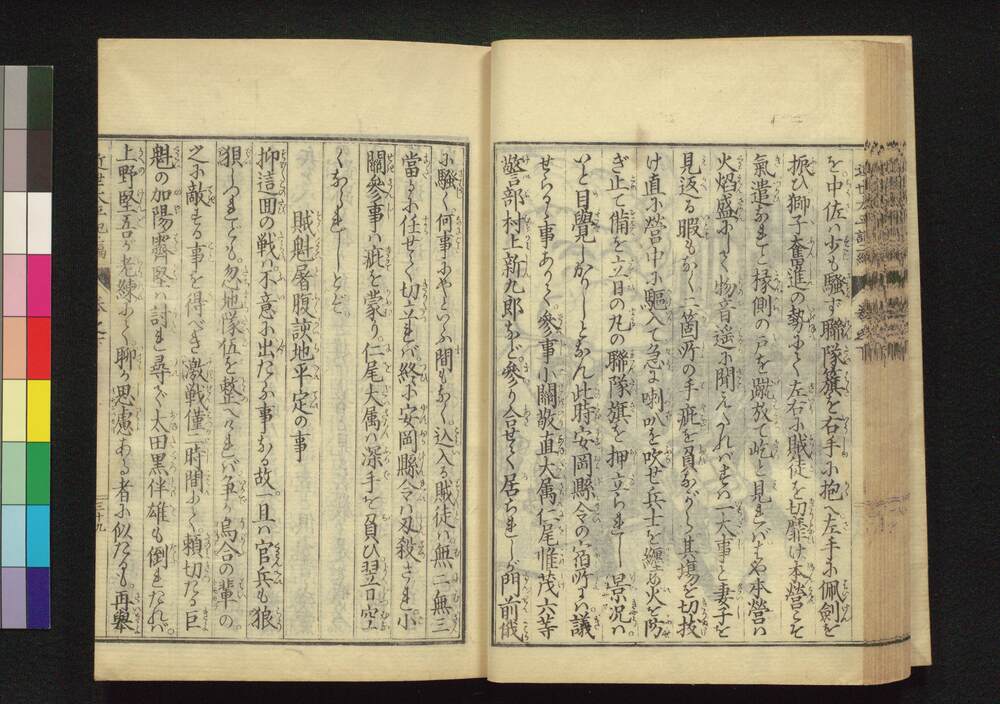 を中佐ハ少も騒ず聯隊籏を右手に抱へ左手に佩劍を
振ひ獅子奮進の勢にて左右に賊徒を切靡け本營こそ
氣遣なれと椽側の戸を蹴放て屹と見れバはや本營ハ
火焰盛にして物音遥に聞えけれバすハ一大事と妻子を
見返る暇もなく二箇所の手疵を負ながら其塲を切抜
け直に營中に驅入て急に喇叭を吹せ兵士を纏め火を防
ぎ止て備を立日の丸の聯隊旗を押立られし景况ハ
いと目覺しかりしとなん此時安岡縣令の宿所にハ議
せらるゝ事ありて參事小關敬直大属仁尾惟茂六等
警部村上新九郎など參り合せて居られしが門前俄
に騒く何事にやといふ間もなく込入る賊徒ハ無二無三
當るに任せて切立れバ終に安岡縣令ハ刄殺され小
關參事ハ疵を蒙り仁尾大属ハ深手を負ひ翌日空
くなられしとぞ
賊魁屠腹諸地平定の事
抑這回の戦ハ不意に出たる事なる故一旦ハ官兵も狼
狽しつれども忽地隊伍を整へけれバ争か烏合の輩の
之に敵する事を得べき激戦僅二時間にて頼切たる巨
魁の加陽霽堅ハ討れ尋で太田黒伴雄も倒れたれバ
上野堅吾ハ老練にて聊か思慮ある者に似たるも再擧
三十九